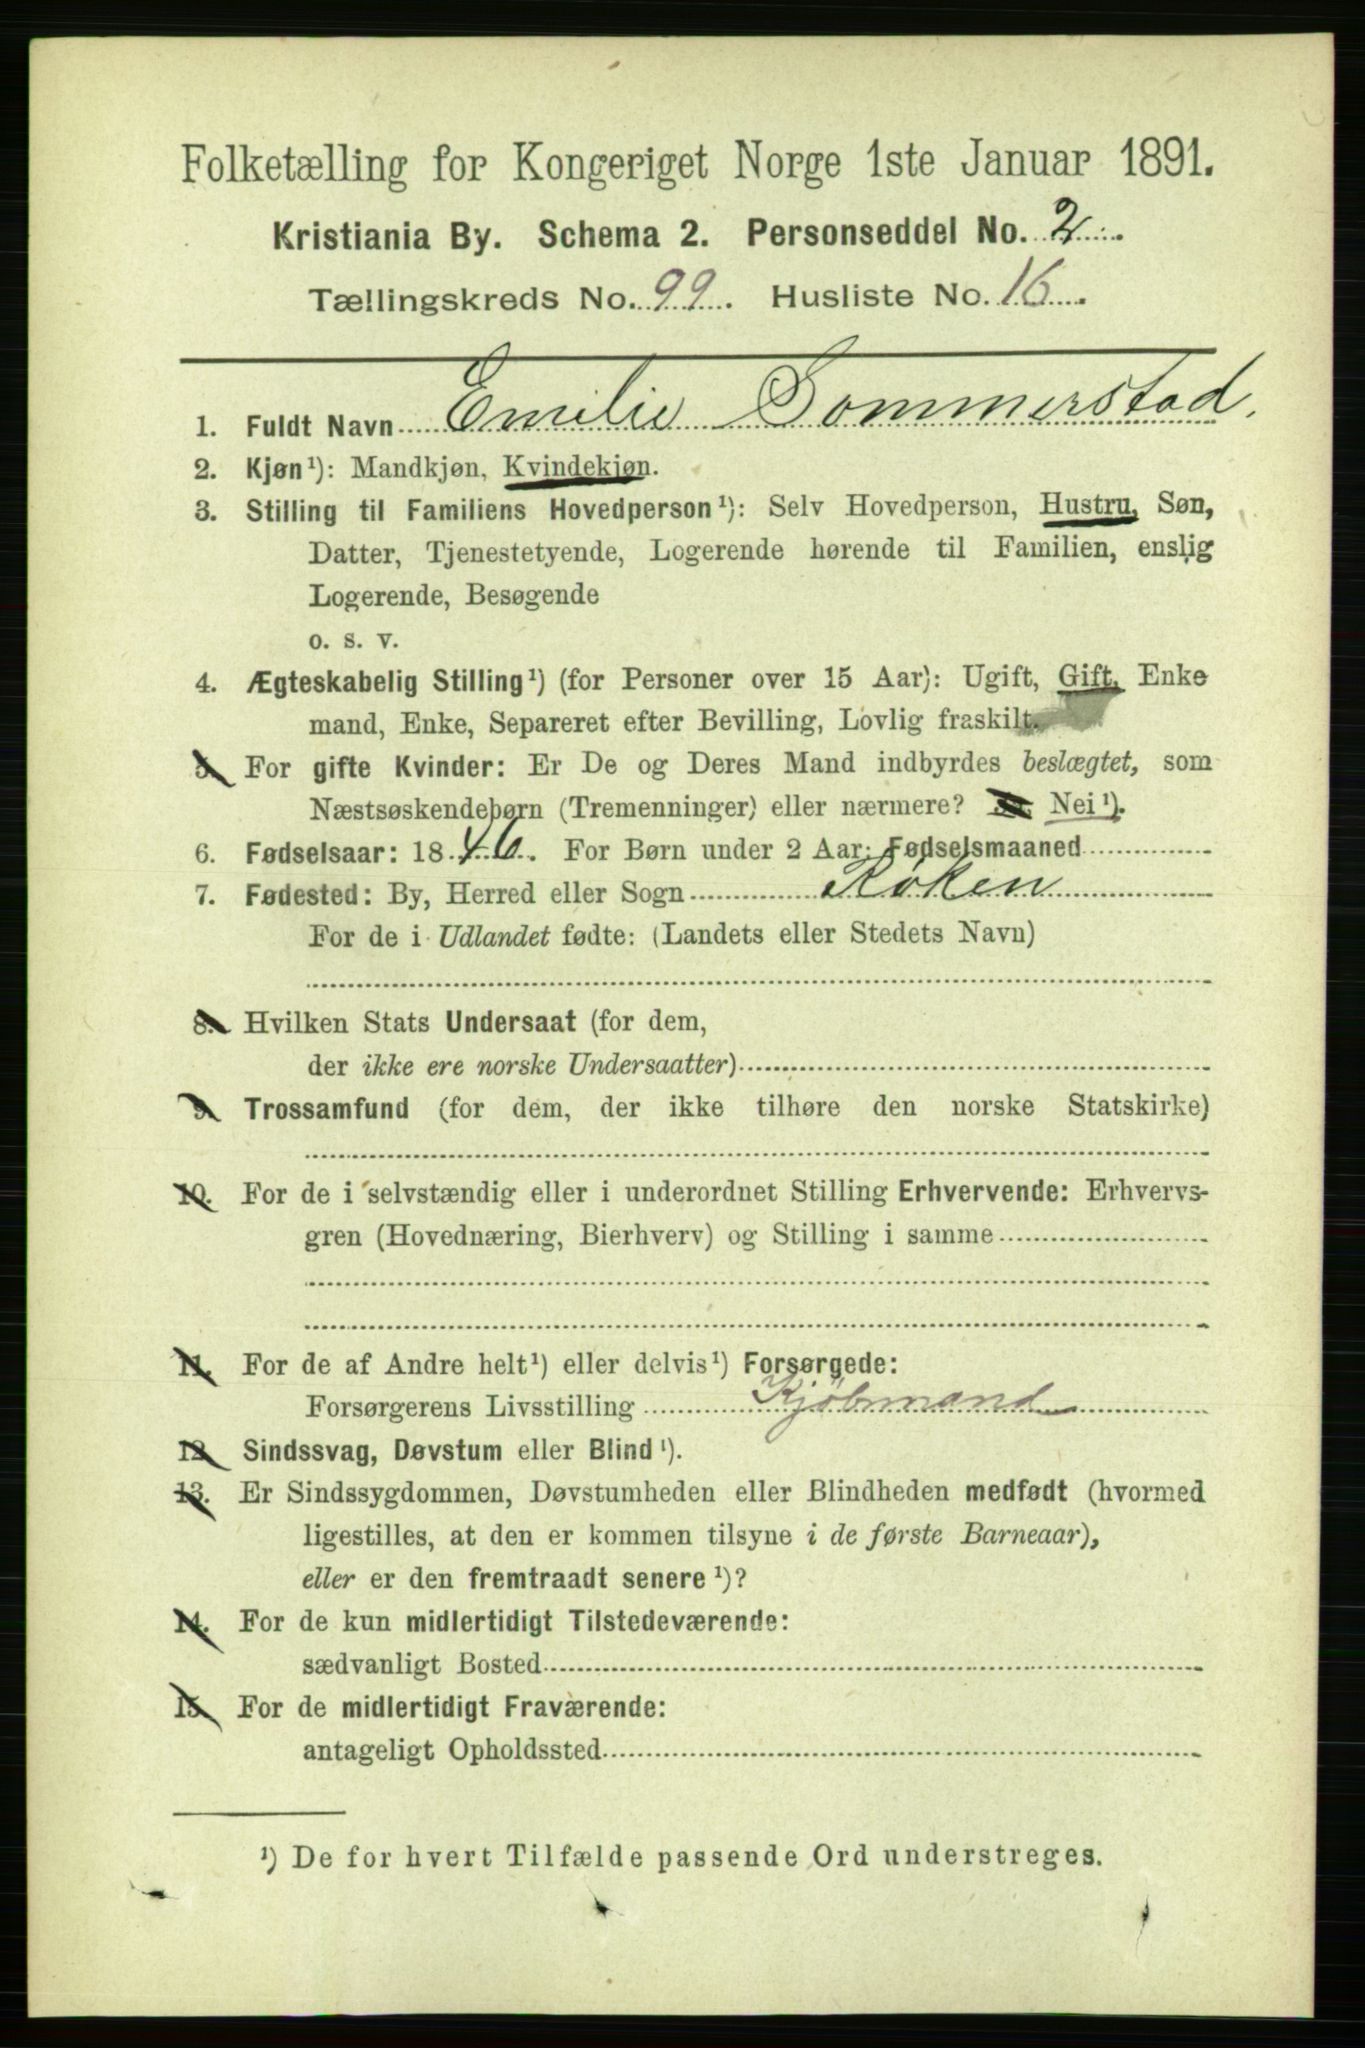 Folketælling for Kongeriget Norge 1ste Januar 1891.
Kristiania By. Schema 2. Personseddel No. 2.
Tællingskreds No. 99. Husliste No. 16.
1. Fuldt Navn Emilie Sommerstad.
2. Kjøn¹): Mandkjøn, Kvindekjøn.
3. Stilling til Familiens Hovedperson¹): Selv Hovedperson, Hustru, Søn,
Datter, Tjenestetyende, Logerende hørende til Familien, enslig
Logerende, Besøgende
o. s. v.
4. Ægteskabelig Stilling¹) (for Personer over 15 Aar): Ugift, Gift, Enke
mand, Enke, Separeret efter Bevilling, Lovlig fraskilt.
5. For gifte Kvinder: Er De og Deres Mand indbyrdes beslægtet, som
Næstsøskendebørn (Tremenninger) eller nærmere? Nei¹).
6. Fødselsaar: 1846. For Børn under 2 Aar: Fødselsmaaned
7. Fødested: By, Herred eller Sogn Røken
For de i Udlandet fødte: (Landets eller Stedets Navn)
8. Hvilken Stats Undersaat (for dem,
der ikke ere norske Undersaatter)
9. Trossamfund (for dem, der ikke tilhøre den norske Statskirke)
10. For de i selvstændig eller i underordnet Stilling Erhvervende: Erhvervs-
gren (Hovednæring, Bierhverv) og Stilling i samme
11. For de af Andre helt¹) eller delvis¹) Forsørgede:
Forsørgerens Livsstilling Kjøbmand
12. Sindssvag, Døvstum eller Blind¹).
13. Er Sindssygdommen, Døvstumheden eller Blindheden medfødt (hvormed
ligestilles, at den er kommen tilsyne i de første Barneaar),
eller er den fremtraadt senere¹)?
14. For de kun midlertidigt Tilstedeværende:
sædvanligt Bosted
15. For de midlertidigt Fraværende:
antageligt Opholdssted
¹) De for hvert Tilfælde passende Ord understreges.